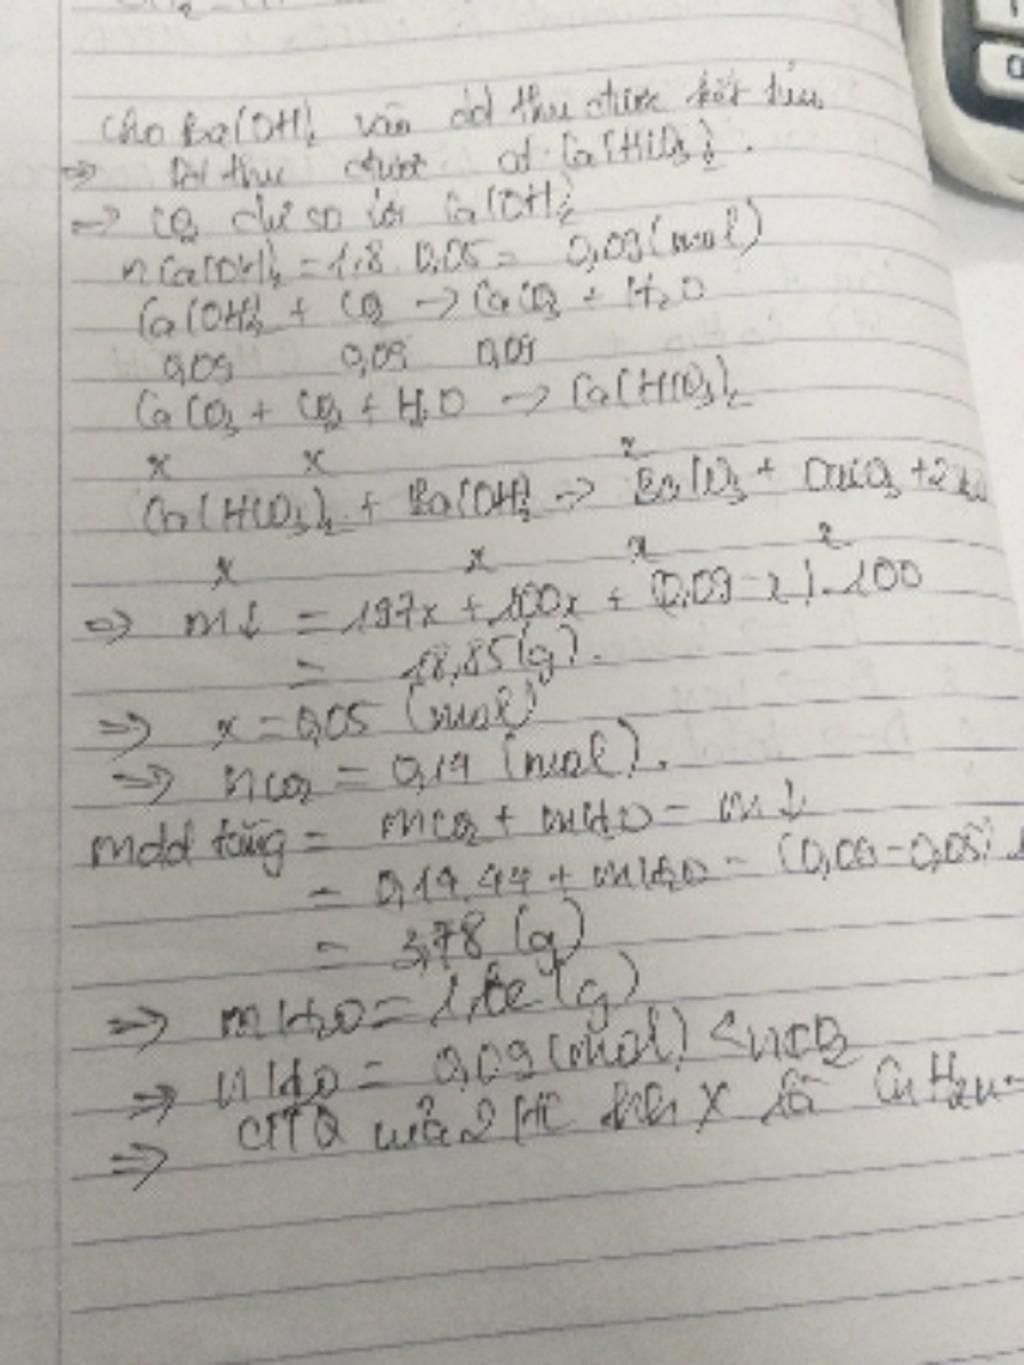 Cho Ba(OH)₂ vào dd thu được kết tủa
=> Dd thu được có Ca(HCO₃)₂.
=> CO₂ dư so với Ca(OH)₂
nCa(OH)₂ = 1,8.0,05 = 0,09(mol)
Ca(OH)₂ + CO₂ → CaCO₃ + H₂O
0,09 0,09 0,09
CaCO₃ + CO₂ + H₂O → Ca(HCO₃)₂
x x x
Ca(HCO₃)₂ + Ba(OH)₂ → BaCO₃ + CaCO₃ + 2H₂O
x x x x
=> m↓ = 197x + 100x + (0,09-x).100
= 18,85(g).
=> x = 0,05 (mol)
=> nCO₂ = 0,14 (mol).
mdd tăng = mCO₂ + mH₂O - m↓
= 0,14.44 + mH₂O - (0,09-0,05).
= 3,78 (g)
=> mH₂O = 1,62 (g)
=> nH₂O = 0,09(mol) < nCO₂
=> CTTQ của 2 HC trong X là CnH2n-